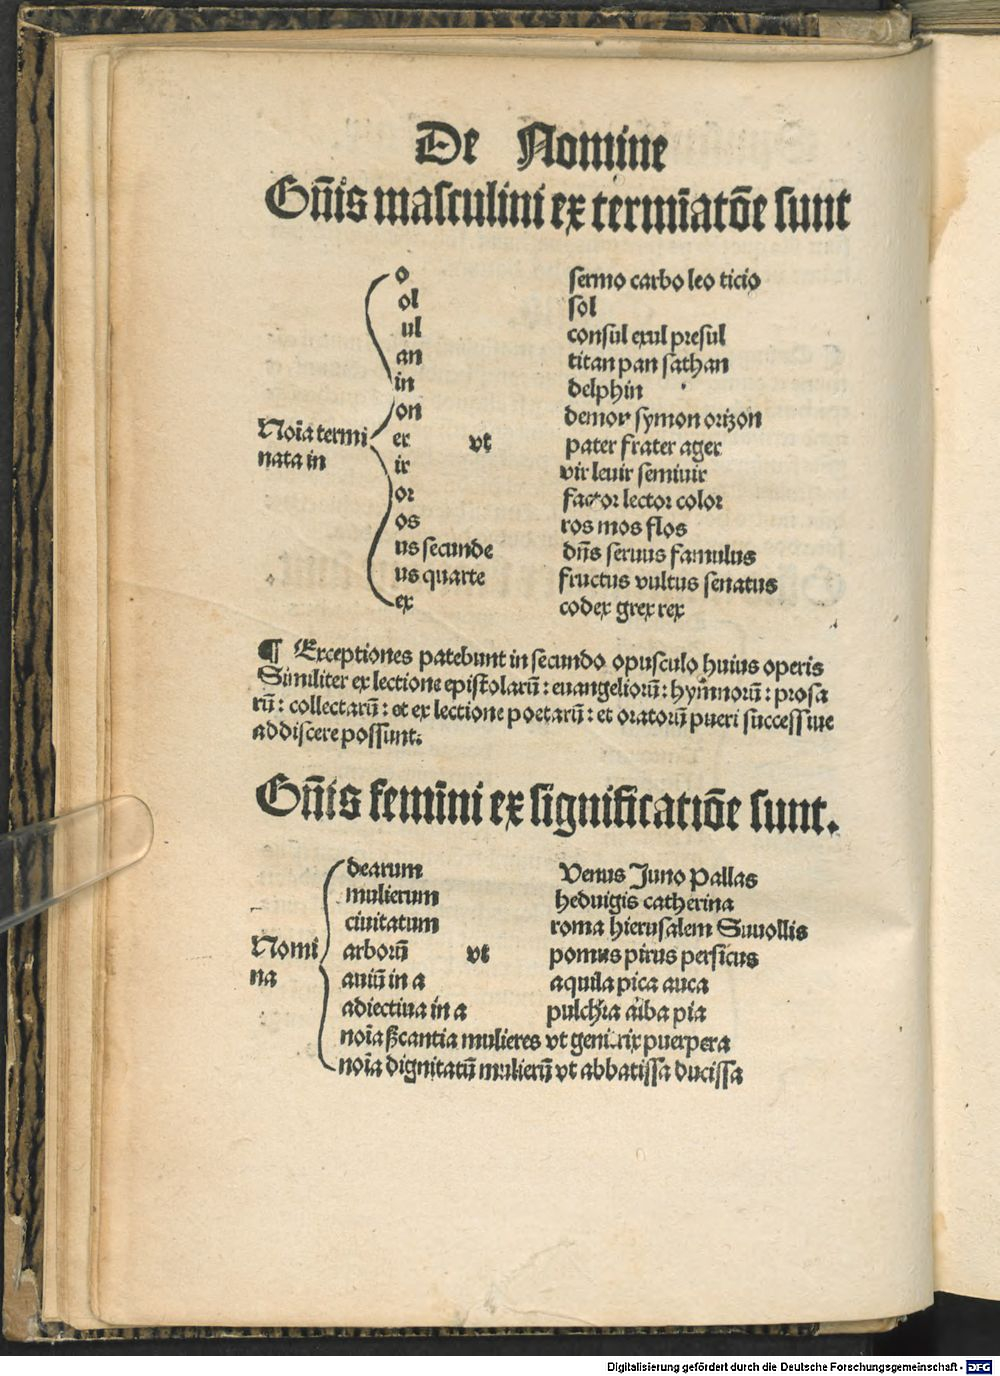 De Nomine
Gn̄is masculini ex termīatōe sunt
o sermo carbo leo ticio
ol sol
ul consul exul presul
an titan pan sathan
in delphin
on demon symon orizon
Noīa termi er vt pater frater ager
nata in ir vir leuir semiuir
or factor lector color
os ros mos flos
us secunde dn̄s seruus famulus
us quarte fructus vultus senatus
ex codex grex rex
¶ Exceptiones patebunt in secundo opusculo huius operis
Similiter ex lectione epistolarū: euangeliorū: hymnorū: prosa
rū: collectarū: et ex lectione poetarū: et oratorū pueri successiue
addiscere possunt.
Gn̄is femīni ex significatiōe sunt.
dearum Venus Juno Pallas
mulierum heduigis catherina
ciuitatum roma hierusalem Suuollis
Nomi arborū vt pomus pirus persicus
na auiū in a aquila pica auca
adiectiua in a pulchra alba pia
noīa ꝭcantia mulieres vt genitrix puerpera
noīa dignitatū mulierū vt abbatissa ducissa
Digitalisierung gefördert durch die Deutsche Forschungsgemeinschaft - DFG